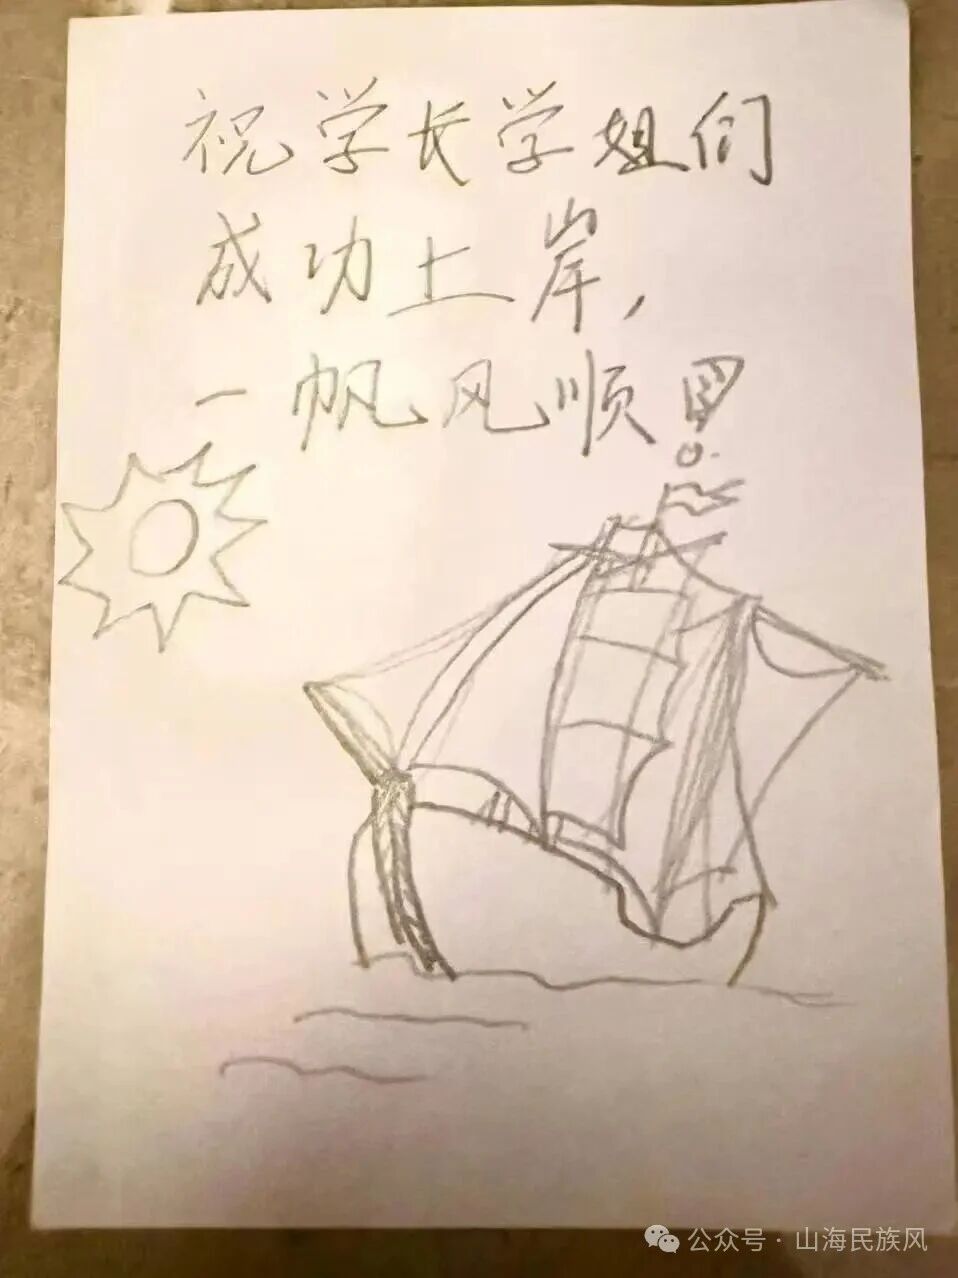 祝学长学姐们
成功上岸，
一帆风顺！
公众号·山海民族风